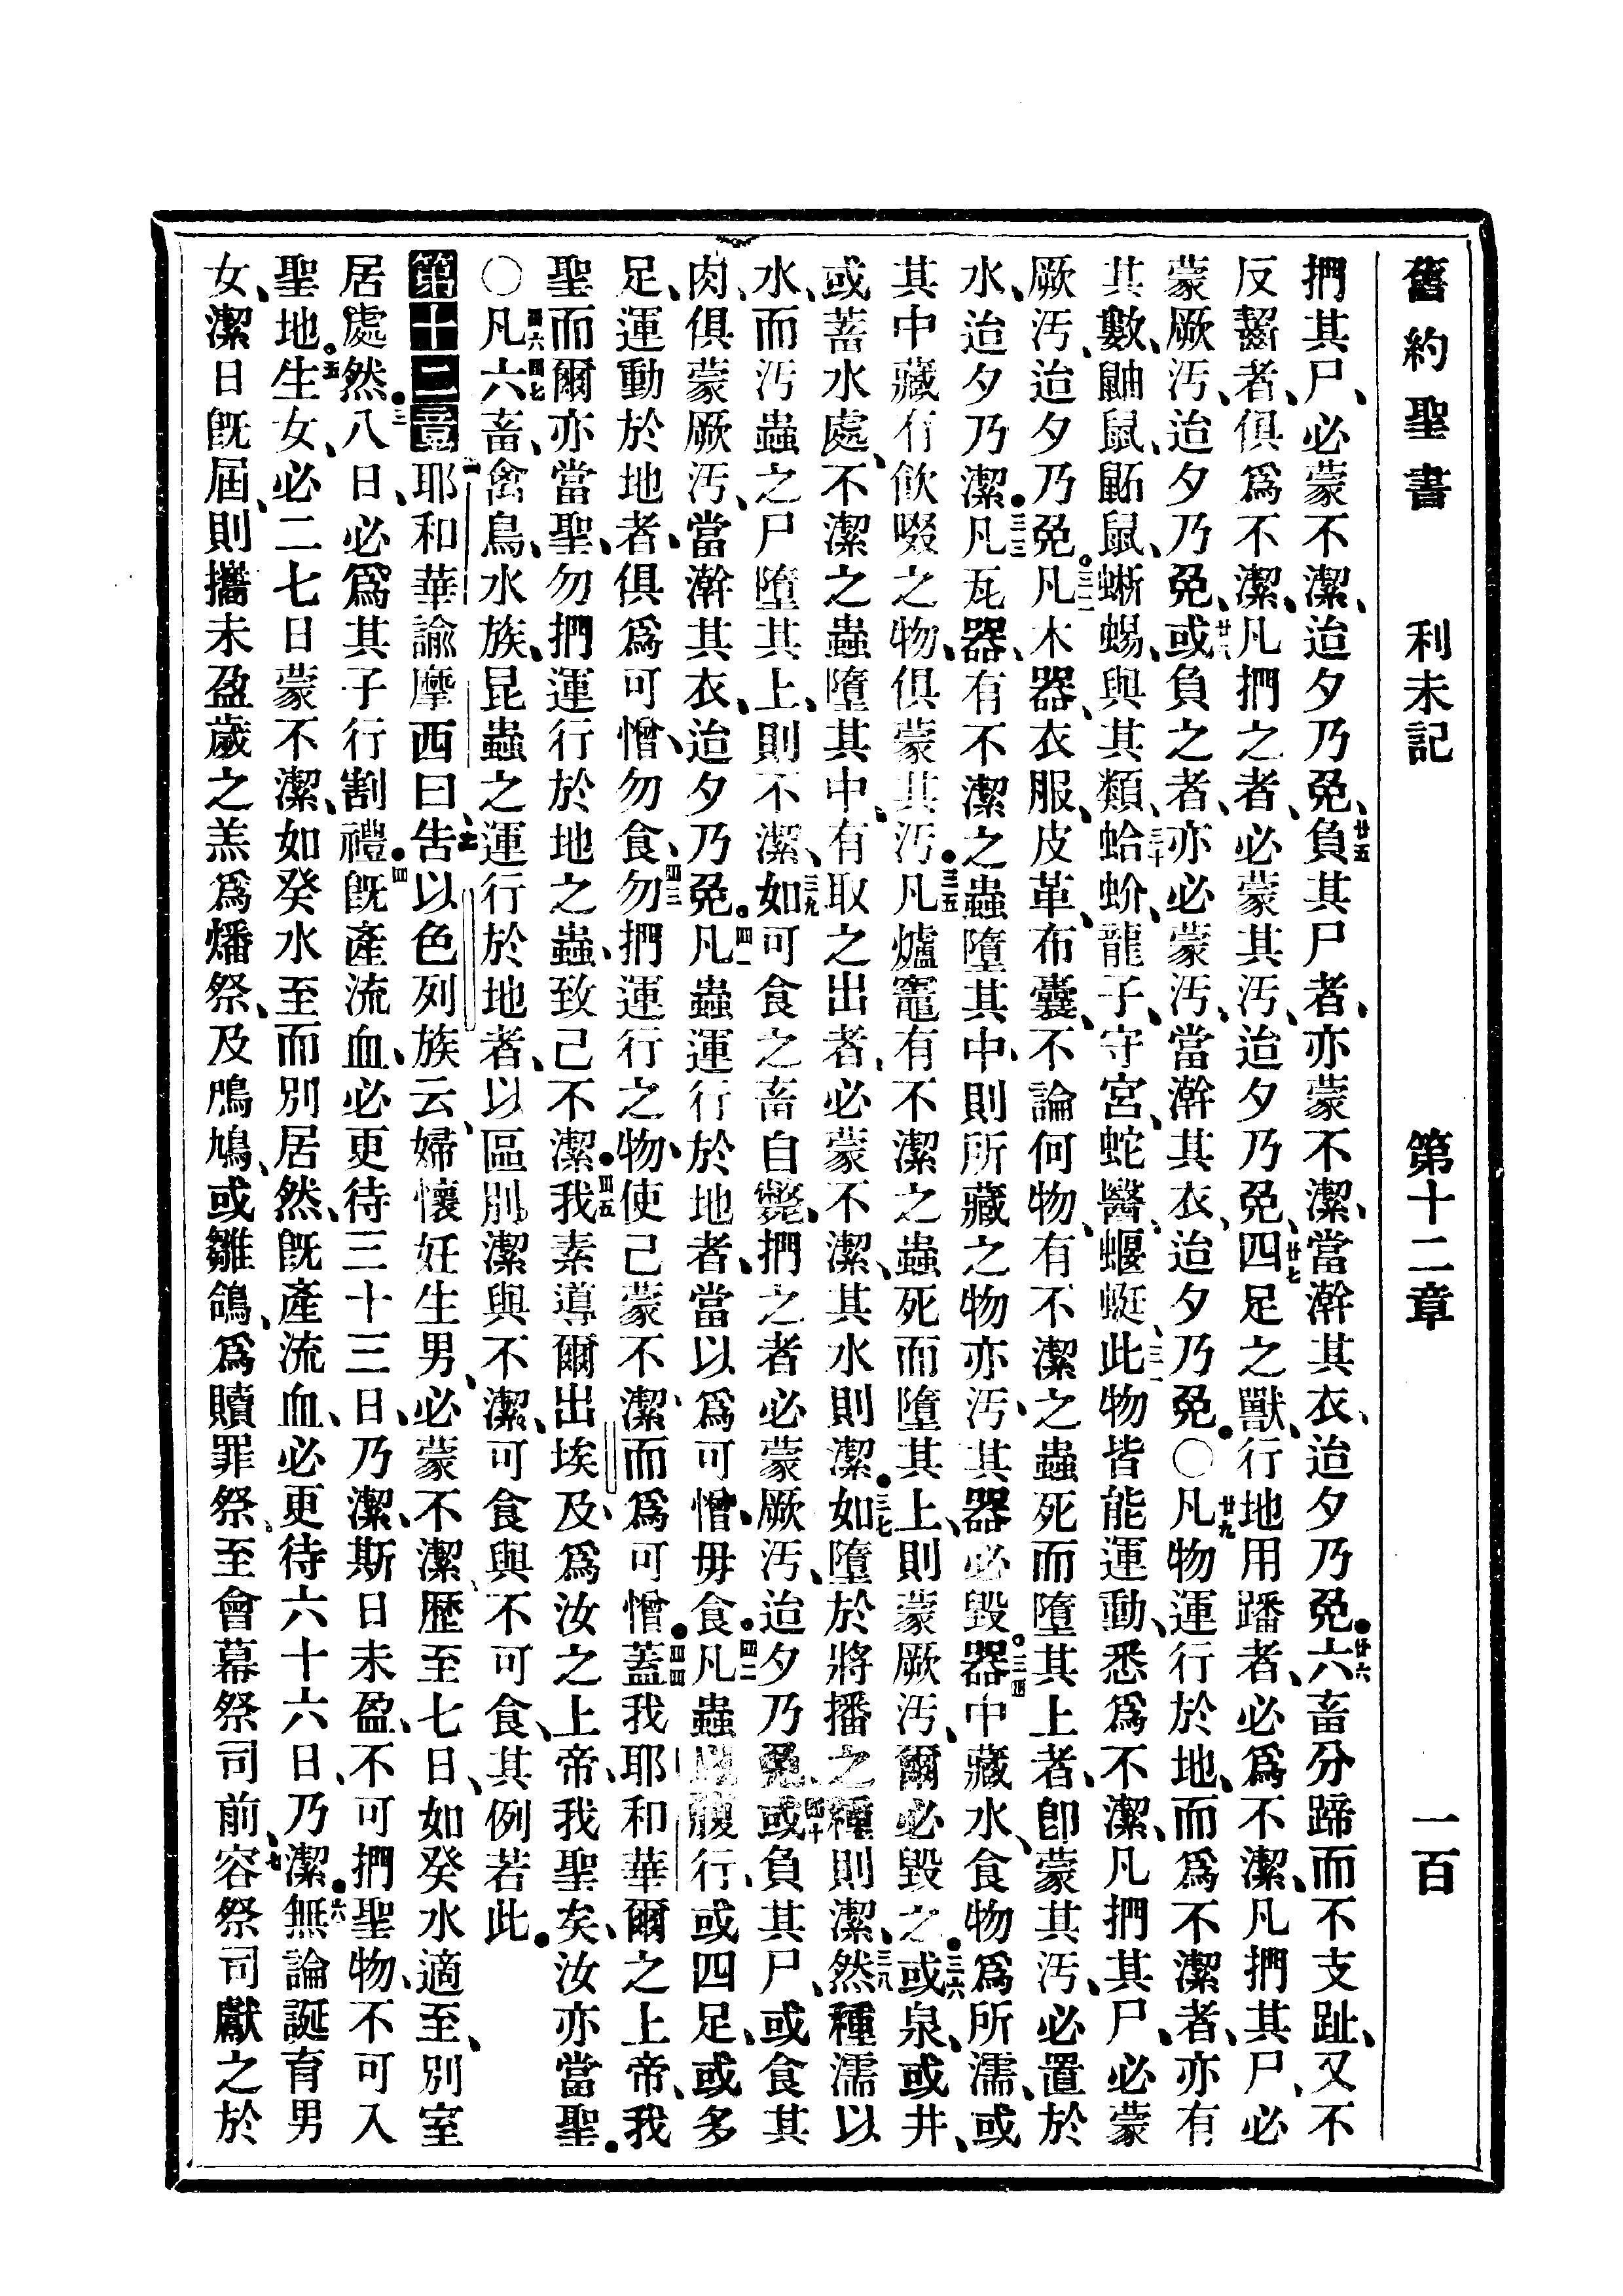 舊約聖書　利未記　第十二章　一百
捫其尸、必蒙不潔、迨夕乃免、廿五負其尸者、亦蒙不潔、當澣其衣、迨夕乃免。廿六六畜分蹄而不支趾、又不
反齧者、俱爲不潔、凡捫之者、必蒙其汚、迨夕乃免、廿七四足之獸、行地用蹯者、必爲不潔、凡捫其尸、必
蒙厥汚、迨夕乃免、廿八或負之者、亦必蒙汚、當澣其衣、迨夕乃免。○廿九凡物運行於地、而爲不潔者、亦有
其數、鼬鼠、鼫鼠、蜥蜴、與其類、三十蛤蚧、龍子、守宮、蛇醫、蝘蜓、三一此物皆能運動、悉爲不潔、凡捫其尸、必蒙
厥汚、迨夕乃免。三二凡木器、衣服、皮革、布囊、不論何物、有不潔之蟲死而墮其上者、卽蒙其汚、必置於
水、迨夕乃潔。三三凡瓦器、有不潔之蟲墮其中、則所藏之物亦汚、其器必毀。三四器中藏水、食物爲所濡、或
其中藏有飲啜之物、俱蒙其汚。三五凡爐竈有不潔之蟲死而墮其上、則蒙厥汚、爾必毀之。三六或泉、或井、
或蓄水處、不潔之蟲墮其中、有取之出者、必蒙不潔、其水則潔。三七如墮於將播之種則潔、三八然種濡以
水、而汚蟲之尸墮其上、則不潔、三九如可食之畜自斃、捫之者必蒙厥汚、迨夕乃免、四十或負其尸、或食其
肉、俱蒙厥汚、當澣其衣、迨夕乃免。四一凡蟲運行於地者、當以爲可憎、毋食。四二凡蟲以腹行、或四足、或多
足、運動於地者、俱爲可憎、勿食、四三勿捫運行之物、使己蒙不潔、而爲可憎。四四蓋我耶和華爾之上帝、我
聖而爾亦當聖、勿捫運行於地之蟲、致己不潔。四五我素導爾出埃及、爲汝之上帝、我聖矣、汝亦當聖。
○四六四七凡六畜、禽鳥、水族、昆蟲之運行於地者、以區別潔與不潔、可食與不可食、其例若此。
第十二章一耶和華諭摩西曰、二告以色列族云、婦懷妊生男、必蒙不潔、歷至七日、如癸水適至、別室
居處然。三八日、必爲其子行割禮。四旣產流血、必更待三十三日、乃潔、斯日未盈、不可捫聖物、不可入
聖地。五生女、必二七日蒙不潔、如癸水至而別居然、旣產流血、必更待六十六日、乃潔。六無論誕育男
女、潔日旣屆、則攜未盈歲之羔爲燔祭、及鳲鳩、或雛鴿、爲贖罪祭。至會幕祭司前、七容祭司獻之於